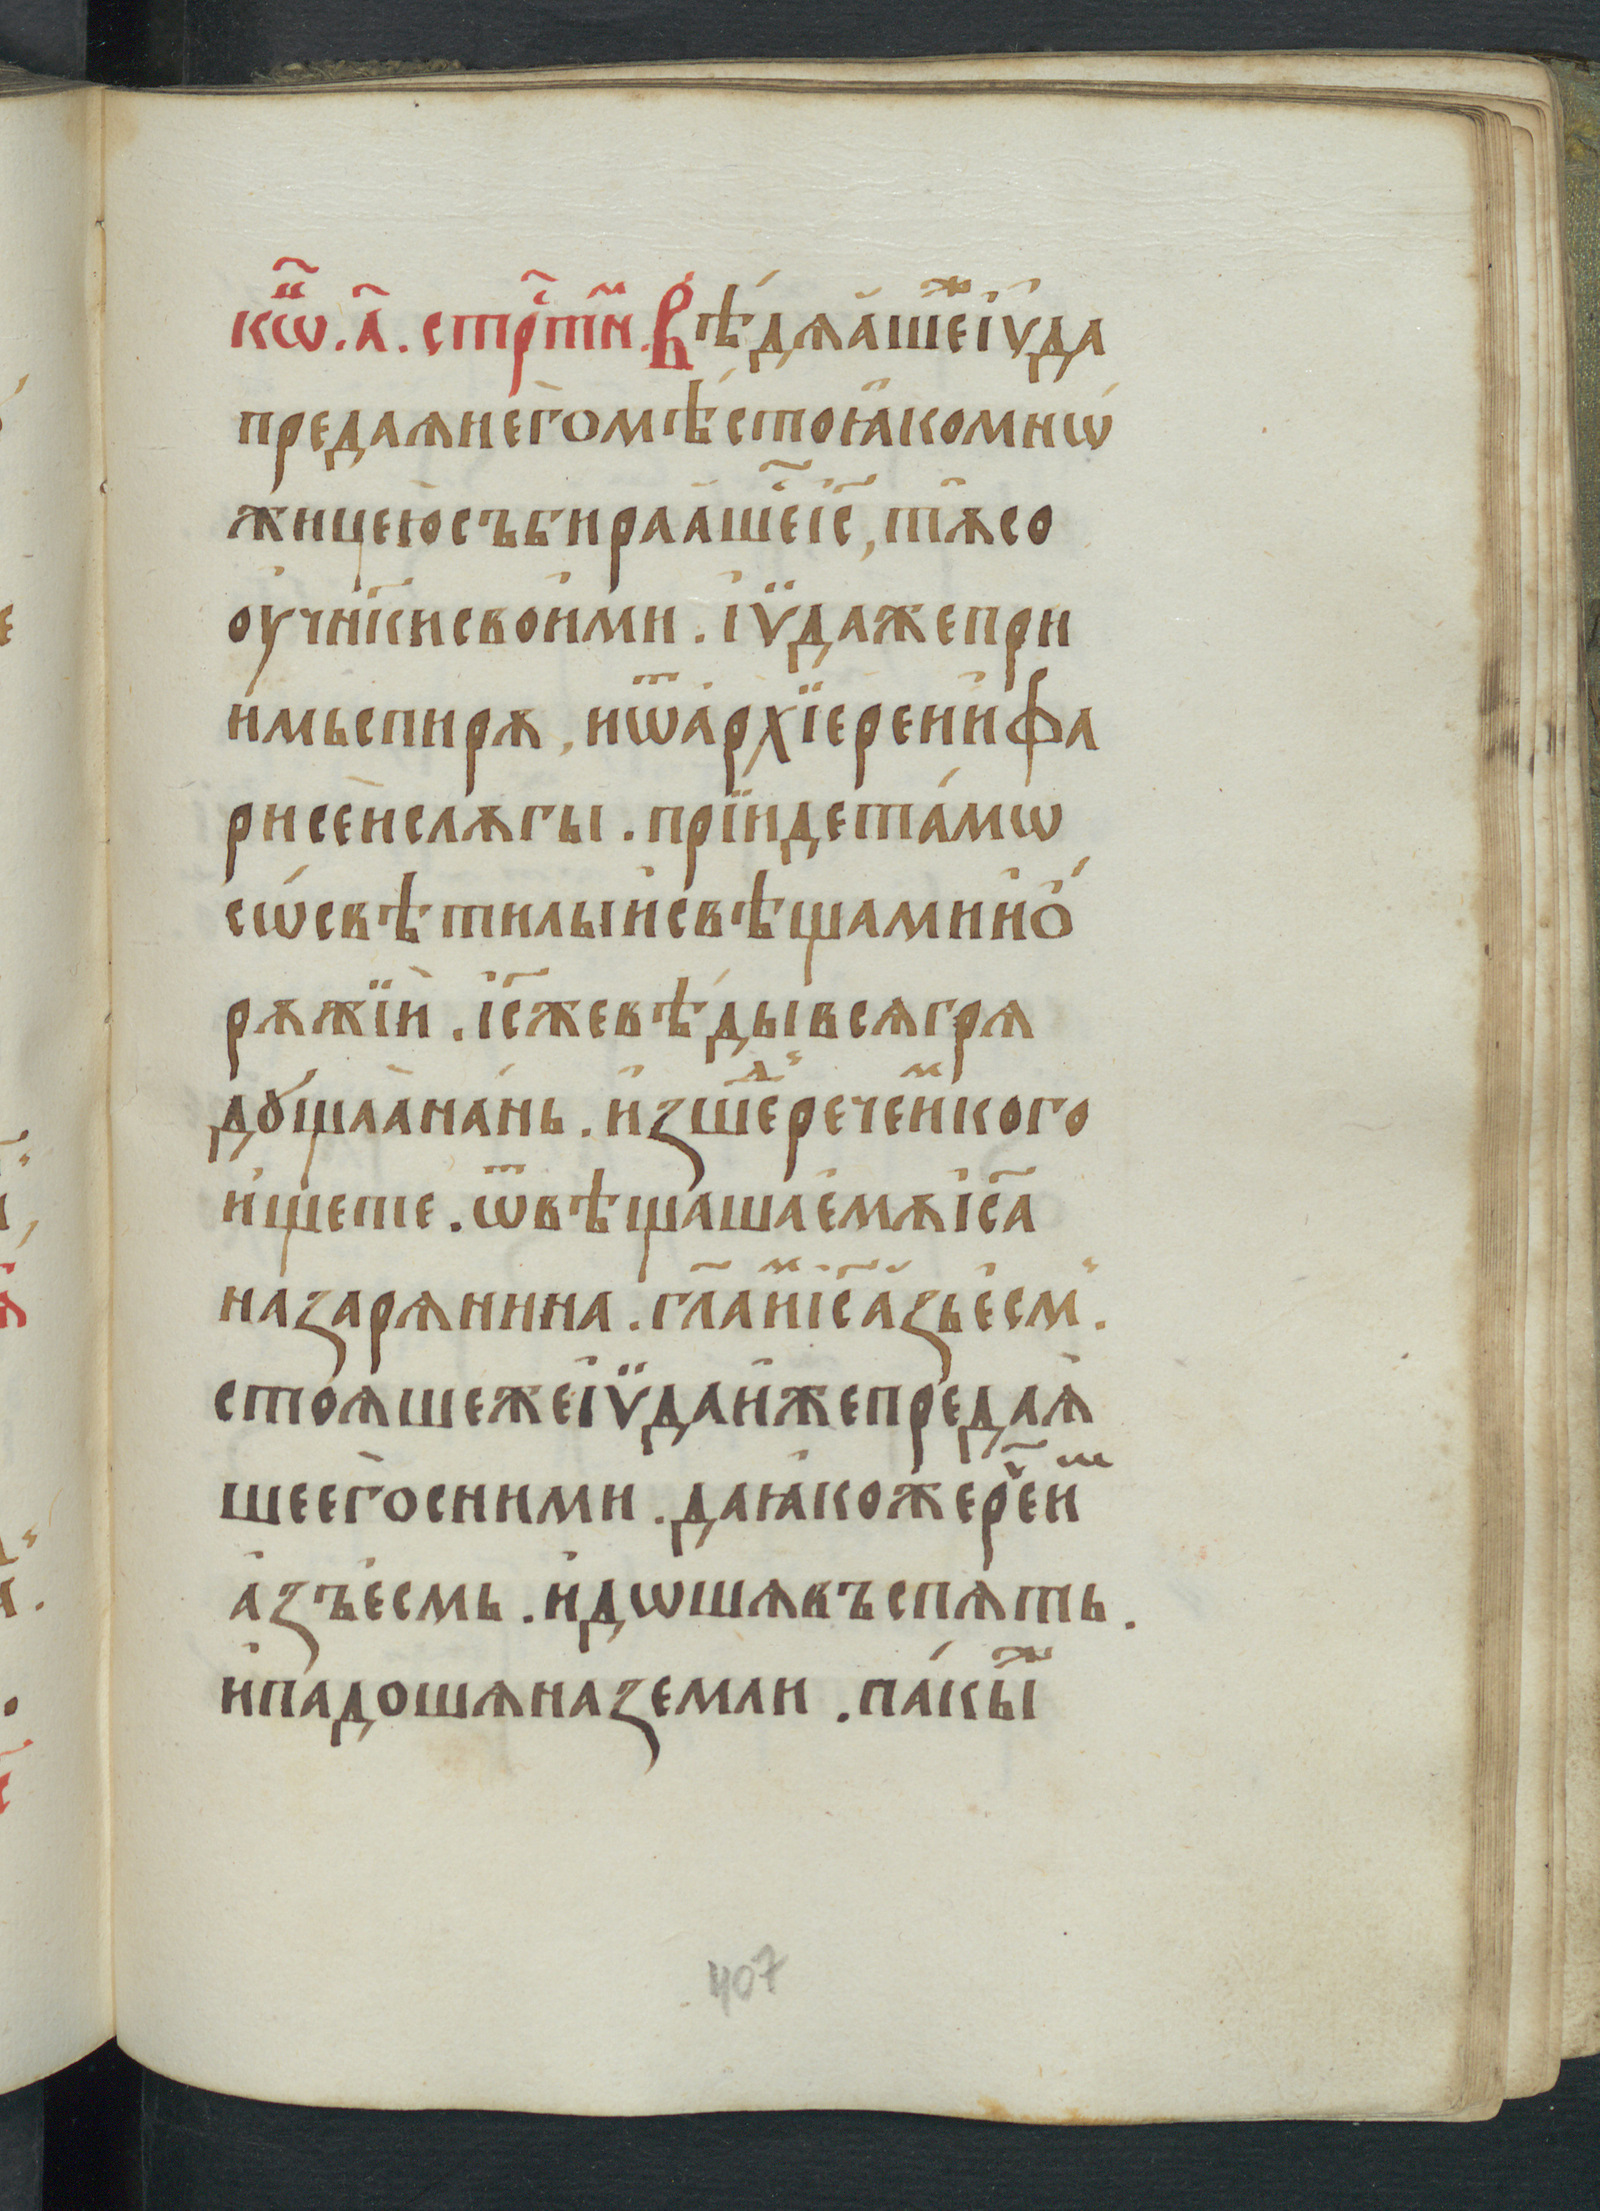 кѡⷩ҇. а҃. стрⷭ҇тиⷨ. Вѣ́дѧ́а́шеⷤі҆ѵда
предаѧ́и҆ е҆го̀ мѣ́сто ꙗ҆ко мнѡ́
жицею̀ събира́аше́ⷭ҇ і҆с҃, тꙋ̀ со
ѹ҆чн҃ки свои҆ми. і҆ѵ̈да же при
и́мь спирꙋ, и҆ ѿ а҆рхїере́и и҆ фа
рисе́и слꙋгы. прїи́де та́мѡ
сѡ́ свѣтилы и҆ свѣщами и҆ о҆́
рꙋжїи̇. і҆с҃ же вѣ́ды всѧ грѧ
дꙋ́щаа̀ на́нь. и҆зшеⷣ рече́ иⷨ кого
и҆́щете. ѿвѣщаша е҆мꙋ і҆с҃а
назарѧнина. гл҃а иⷨ і҆с҃ а҆зъ е҆смⸯ.
стоѧ́ше же і҆ѵ̈да и҆же предаѧ́
ше е҆го̀ с ними. да ꙗ҆коже ре́ⷱ҇ иⷨ
а҆зъ е҆смь. и҆дѡшѧ въспѧ́ть.
и҆ падошѧ на земли. па́кыⷤ
407